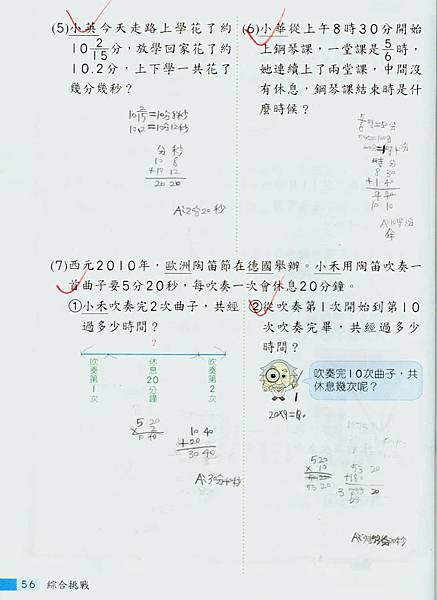 (5)小英今天走路上學花了約
10 2/15分，放學回家花了約
10.2分，上下學一共花了
幾分幾秒？
10 2/15=10分8秒
10.2=10分12秒
分 秒
10 8
+10 12
20 20
A:20分20秒
(6)小華從上午8時30分開始
上鋼琴課，一堂課是5/6時，
她連續上了兩堂課，中間沒
有休息，鋼琴課結束時是什
麼時候？
時 分
8 30
+1 40
10 10
(7)西元2010年，歐洲陶笛節在德國舉辦。小禾用陶笛吹奏一
首曲子要5分20秒，每吹奏一次會休息20分鐘。
①小禾吹奏完2次曲子，共經
過多少時間？
?
吹奏第1次
休息20分鐘
吹奏第2次
5 20
10 40
+20
30 40
A:30分40秒
②從吹奏第1次開始到第10
次吹奏完畢，共經過多少
時間？
吹奏完10次曲子，共
休息幾次呢？
5 20
x 10
53 20
53 20
+180
56 綜合挑戰